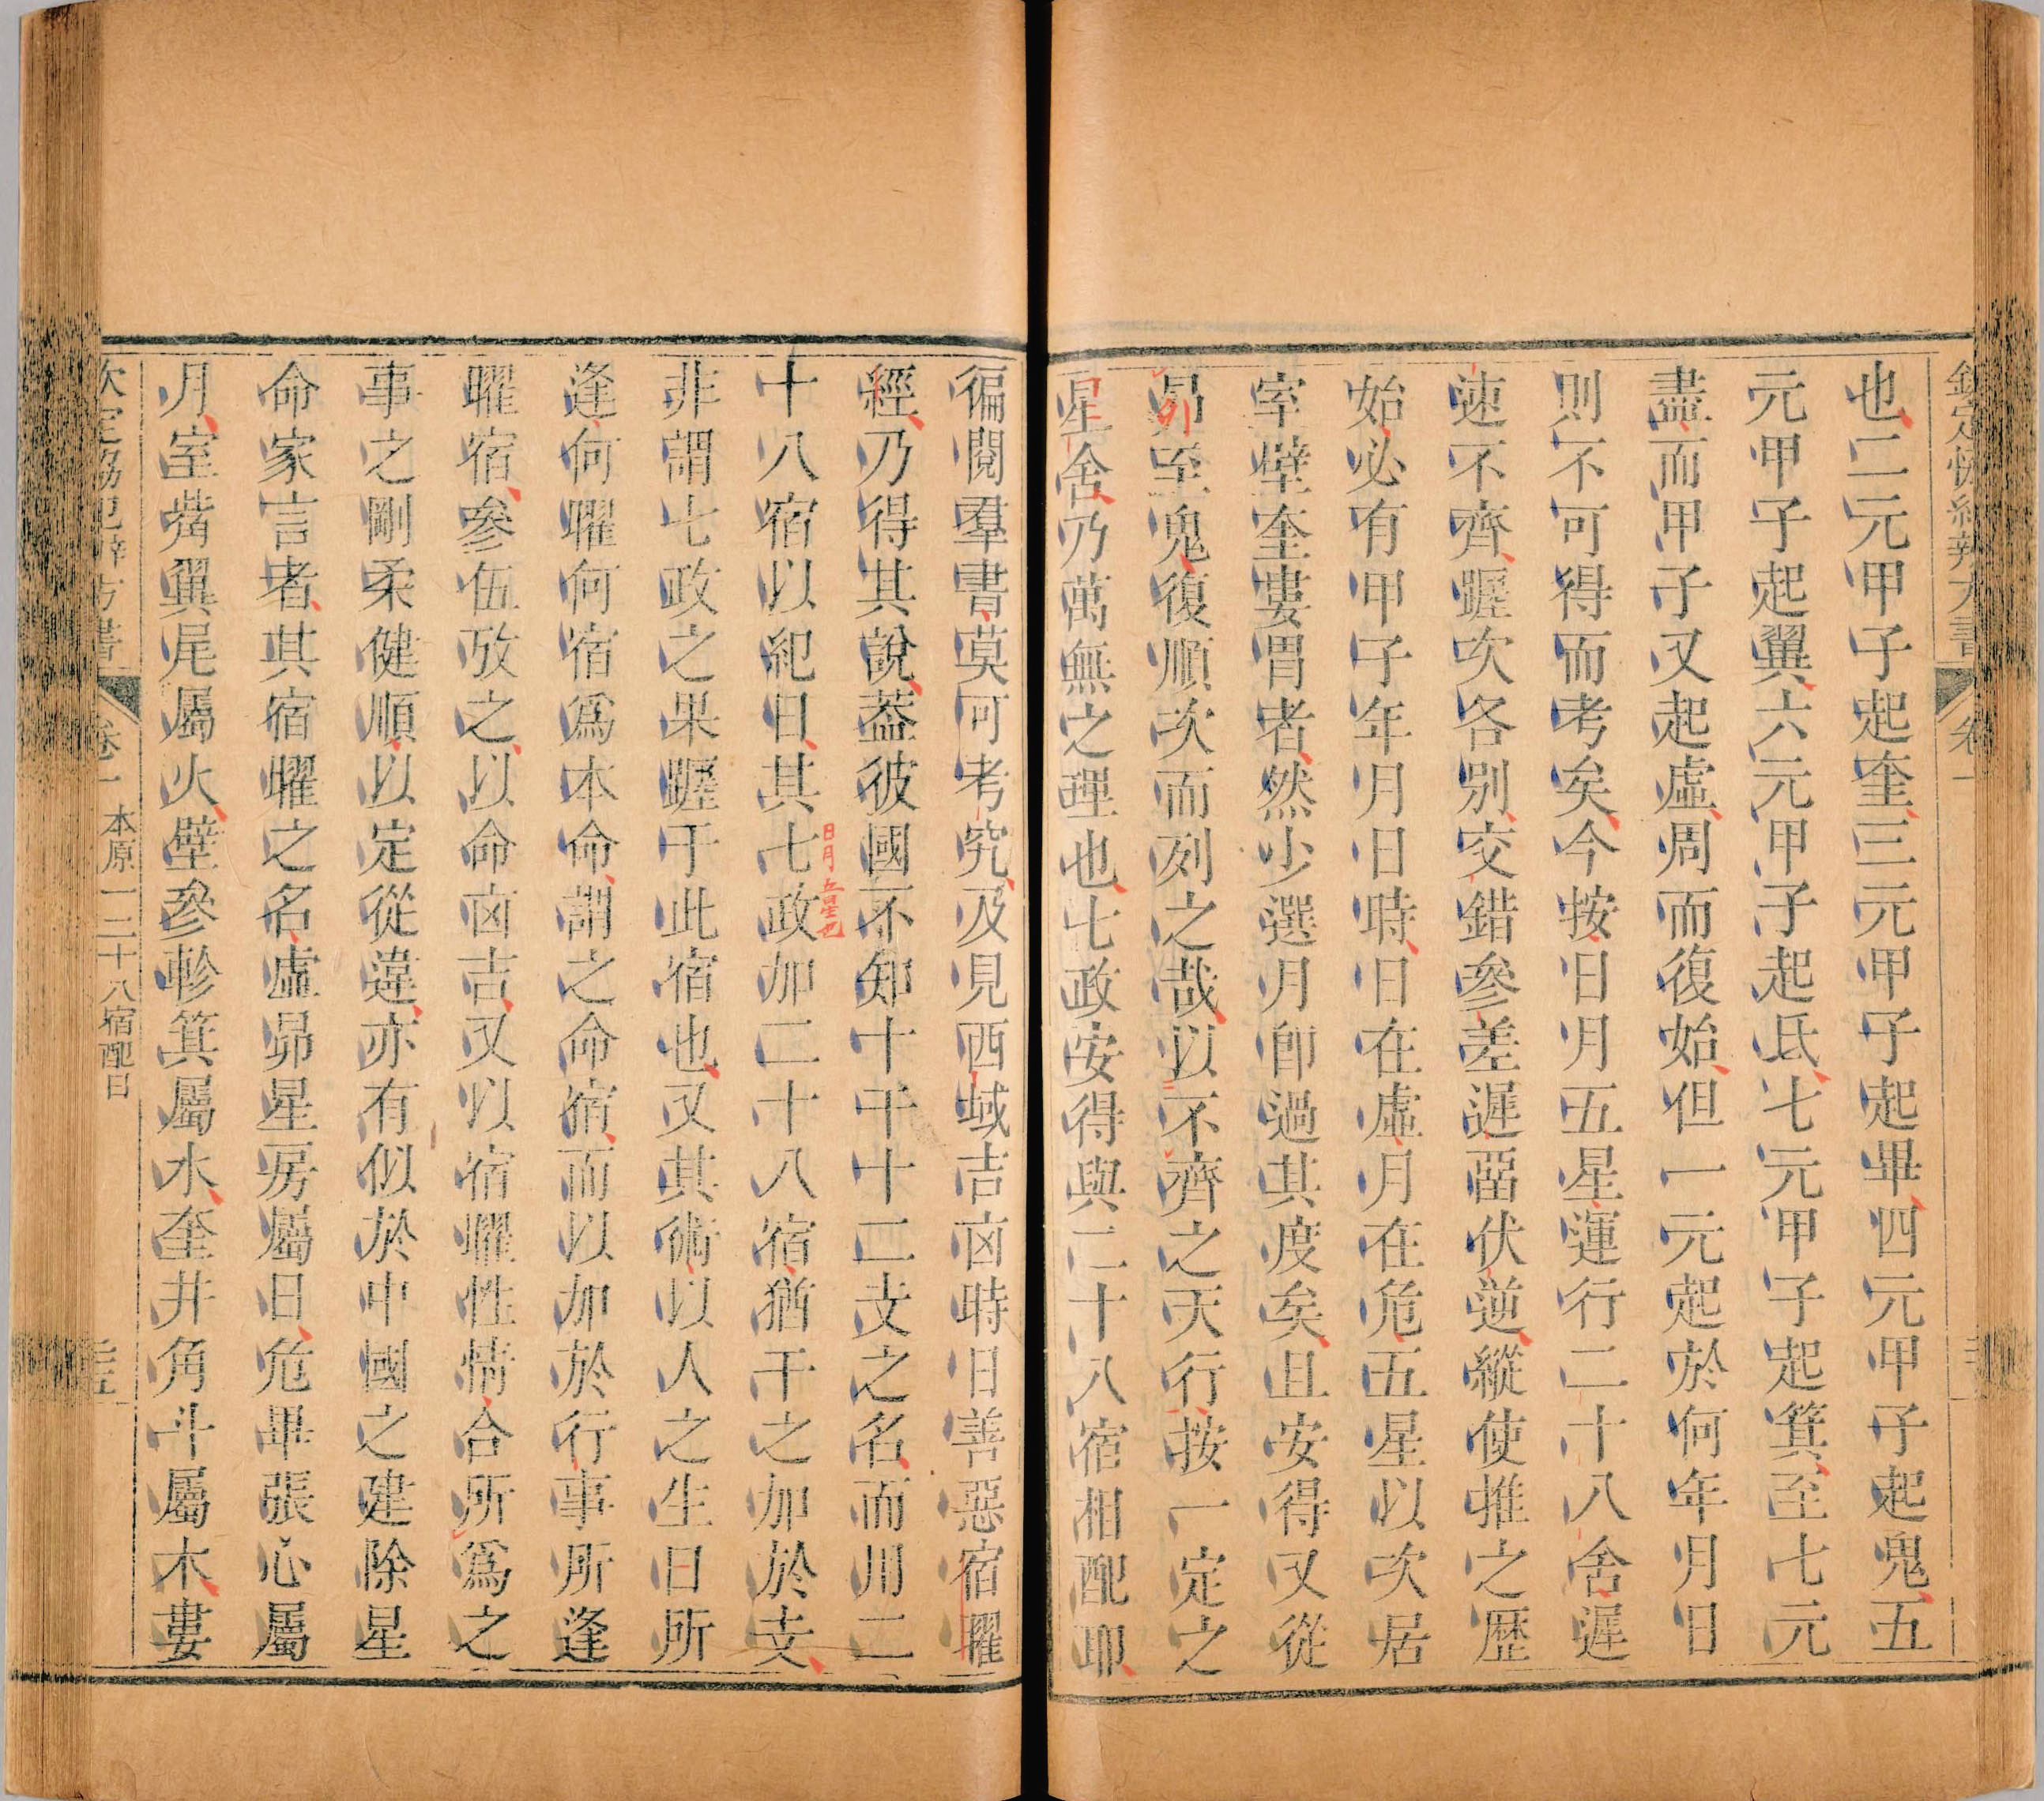 欽定協紀辨方書 卷一
也二元甲子起奎三元甲子起畢四元甲子起鬼五
元甲子起翼六元甲子起氐七元甲子起箕至七元
盡而甲子又起虛周而復始但一元起於何年月日
則不可得而考矣今按日月五星運行二十八舍遲
速不齊躔次各別交錯參差遲留伏逆縱使推之歷
始必有甲子年月日時日在虛月在危五星以次居
室壁奎婁胃者然少選月卽過其度矣且安得又從
昴至鬼復順次而列之哉以不齊之天行按一定之
星舍乃萬無之理也七政安得與二十八宿相配耶
徧閱羣書莫可考究及見西域吉凶時日善惡宿曜
經乃得其說葢彼國不知十干十二支之名而用二
十八宿以紀日其七政加二十八宿猶干之加於支
日月五星也
非謂七政之果躔于此宿也又其術以人之生日所
逢何曜何宿爲本命謂之命宿而以加於行事所逢
曜宿參伍攷之以命凶吉又以宿曜性情合所爲之
事之剛柔健順以定從違亦有似於中國之建除星
命家言者其宿曜之名虛昴星房屬日危畢張心屬
月室觜翼尾屬火壁參軫箕屬水奎井角斗屬木婁
欽定協紀辨方書 卷一 本原一 二十八宿配日